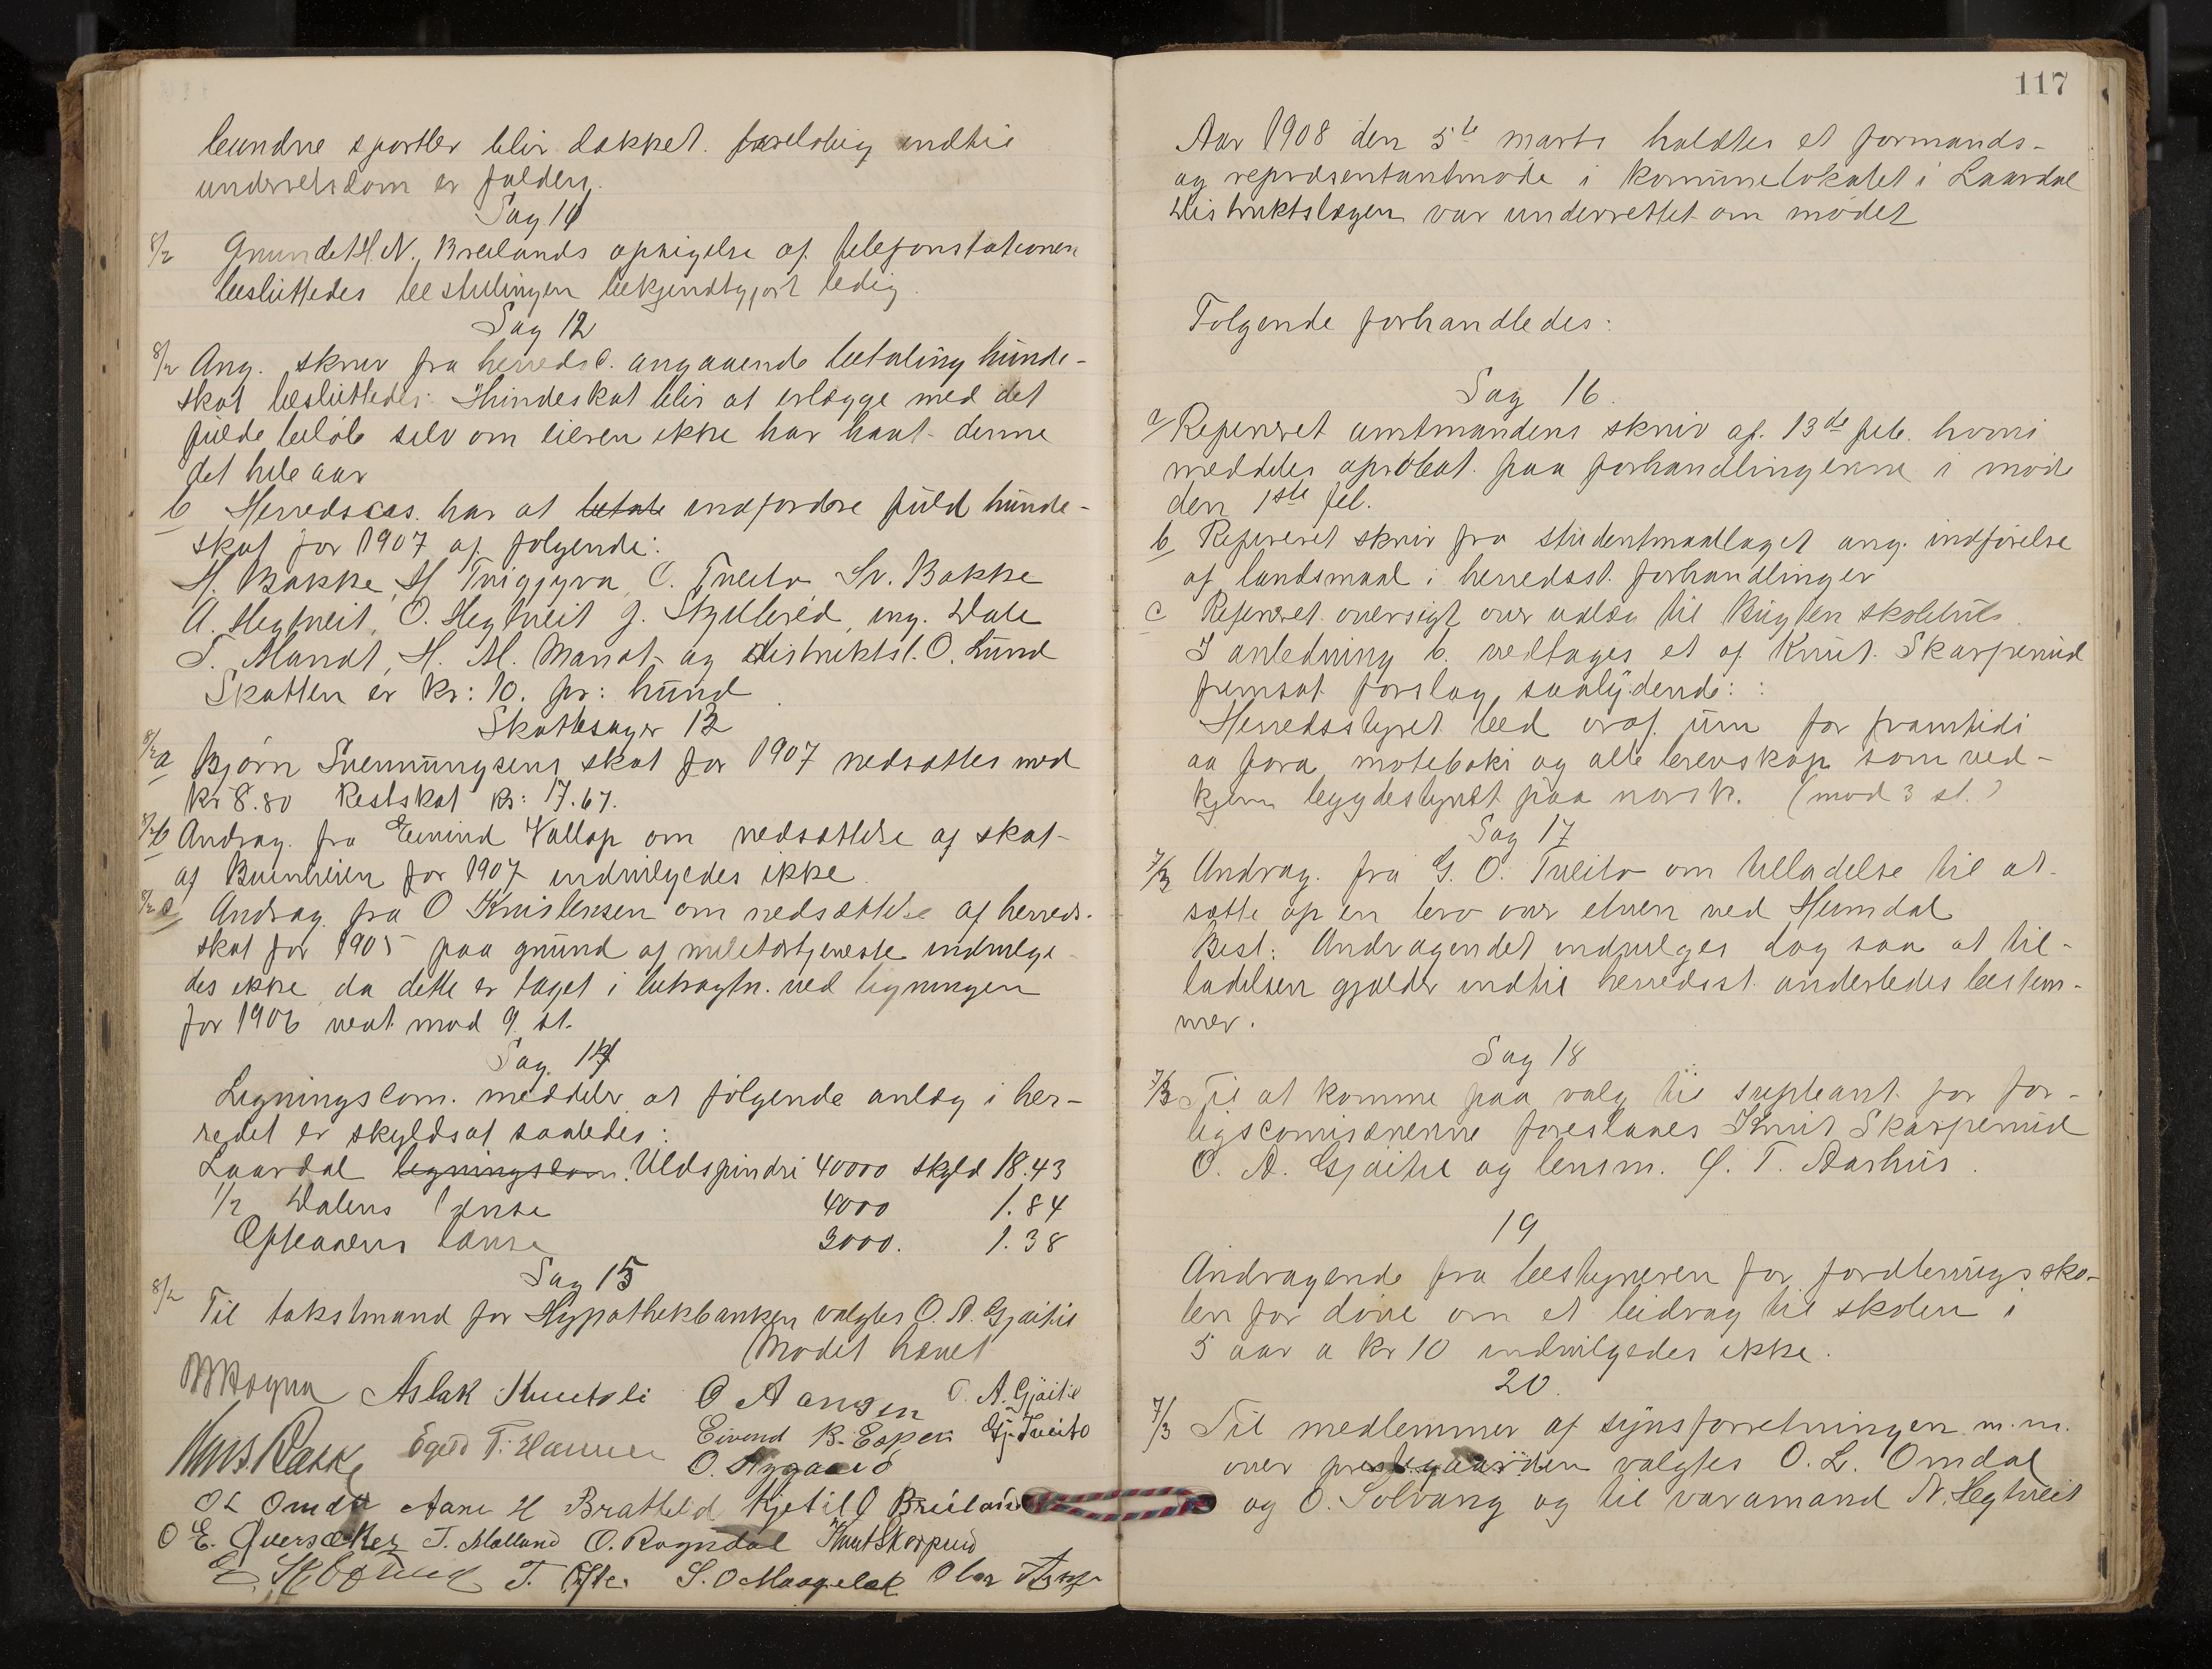 bundne sportler blir dækket foreløbig indtil
underretsdom er falden.
Sag 11
8/2 Grundet H. N. Breilands opsigelse af telefonstationen
besluttedes bestillingen bekjendtgjort ledig.
Sag 12
8/2 Ang. skriv fra herredsc. angaaende betaling hunde-
skat besluttedes: Hundeskat blir at erlægge med det
fulde beløb selv om eieren ikke har havt denne
det hele aar
b Herredscas. har at betale indfordre fuld hunde-
skat for 1907 af følgende:
H. Bakke, H Tvigyva, O. Tveito Sv. Bakke
A. Hegtveit, O. Hegtveit G. Skjellerud, ing. Dale
T. Mandt, H. M. Mandt og distriktsl. O. Lund
Skatten er kr: 10. pr: hund
Skattesager 13
8/2 a Bjørn Svenningsens skat for 1907 nedsættes med
kr 8.80 Restskat kr: 17.67.
8/2 b Andrag. fra Eivind Vallap om nedsættelse af skat
af Buenheien for 1907 indvilgedes ikke
8/2 c Andrag. fra O Kristensen om nedsættelse af herreds-
skat for 1905 paa grund af militærtjeneste indvilge-
des ikke, da dette er taget i betragtn. ved ligningen
for 1906 vedt. mod 9 st.
Sag. 14
Ligningscom. meddeler at følgende anlæg i her-
redet er skyldsat saaledes:
Laardal ligningscom. Uldspinderi 40000 skyld 18.43
1/2 Dalens lænse 4000 1.84
Ofteaaens lænse 3000. 1.38
Sag 15
8/2 Til takstmand for Hypothekbanken valgtes O. A. Gjøitil
Mødet hævet
Aslak Kvetoli O Aamsen O. A. Gjøitil
Knut Bakke Egild T. Eivind B. Espen Gj. Tveito
O. Nygaard
O L Omdal Aane H Bratteld Kjetil O Breiland
O E. Qversøker T. Molland O. Rogndal Knut Skarperud
T. Ofte S. O Maagelek Olav
117
Aar 1908 den 5te marts holdtes et formands-
og repræsentantmøde i kommunelokalet i Laardal
Distriktslægen var underrettet om mødet
Følgende forhandledes:
Sag 16.
a Refereret amtmandens skriv af 13de feb. hvori
meddeles aprobat. paa forhandlingerne i møde
den 1ste feb.
b Refereret skriv fra studentmaallaget ang. indførelse
af landsmaal i herredsst. forhandlinger
c Refereret oversigt over udlæg til Bugten skolehus.
I anledning b. vedtages et af Knut Skarperud
fremsat forslag, saalydende:
Herredsstyret bed ordf. um for framtidi
aa føra møteboki og alle brevskap som ved-
kjem bygdestyret paa norsk. (mod 3 st.)
Sag 17
7/3 Andrag. fra G. O. Tveito om tilladelse til at
sætte op en bro over elven ved Heimdal
Besl: Andragendet indvilges dog saa at til-
ladelsen gjælder indtil herredsst. anderledes bestem-
mer.
Sag 18
7/3 Til at komme paa valg til supleant for for-
ligscomisærerne foreslaaes Knut Skarperud
O. A. Gjøitil og lensm. G. T. Aarhus.
19
Andragende fra bestyreren for fordberingssko-
len for døve om et bidrag til skolen i
5 aar a kr 10 indvilgedes ikke.
20.
7/3 Til medlemmer af synsforretningen m.m.
over prestegaarden valgtes O. L. Omdal
og O. Solvang og til varamand N. Hegtveit